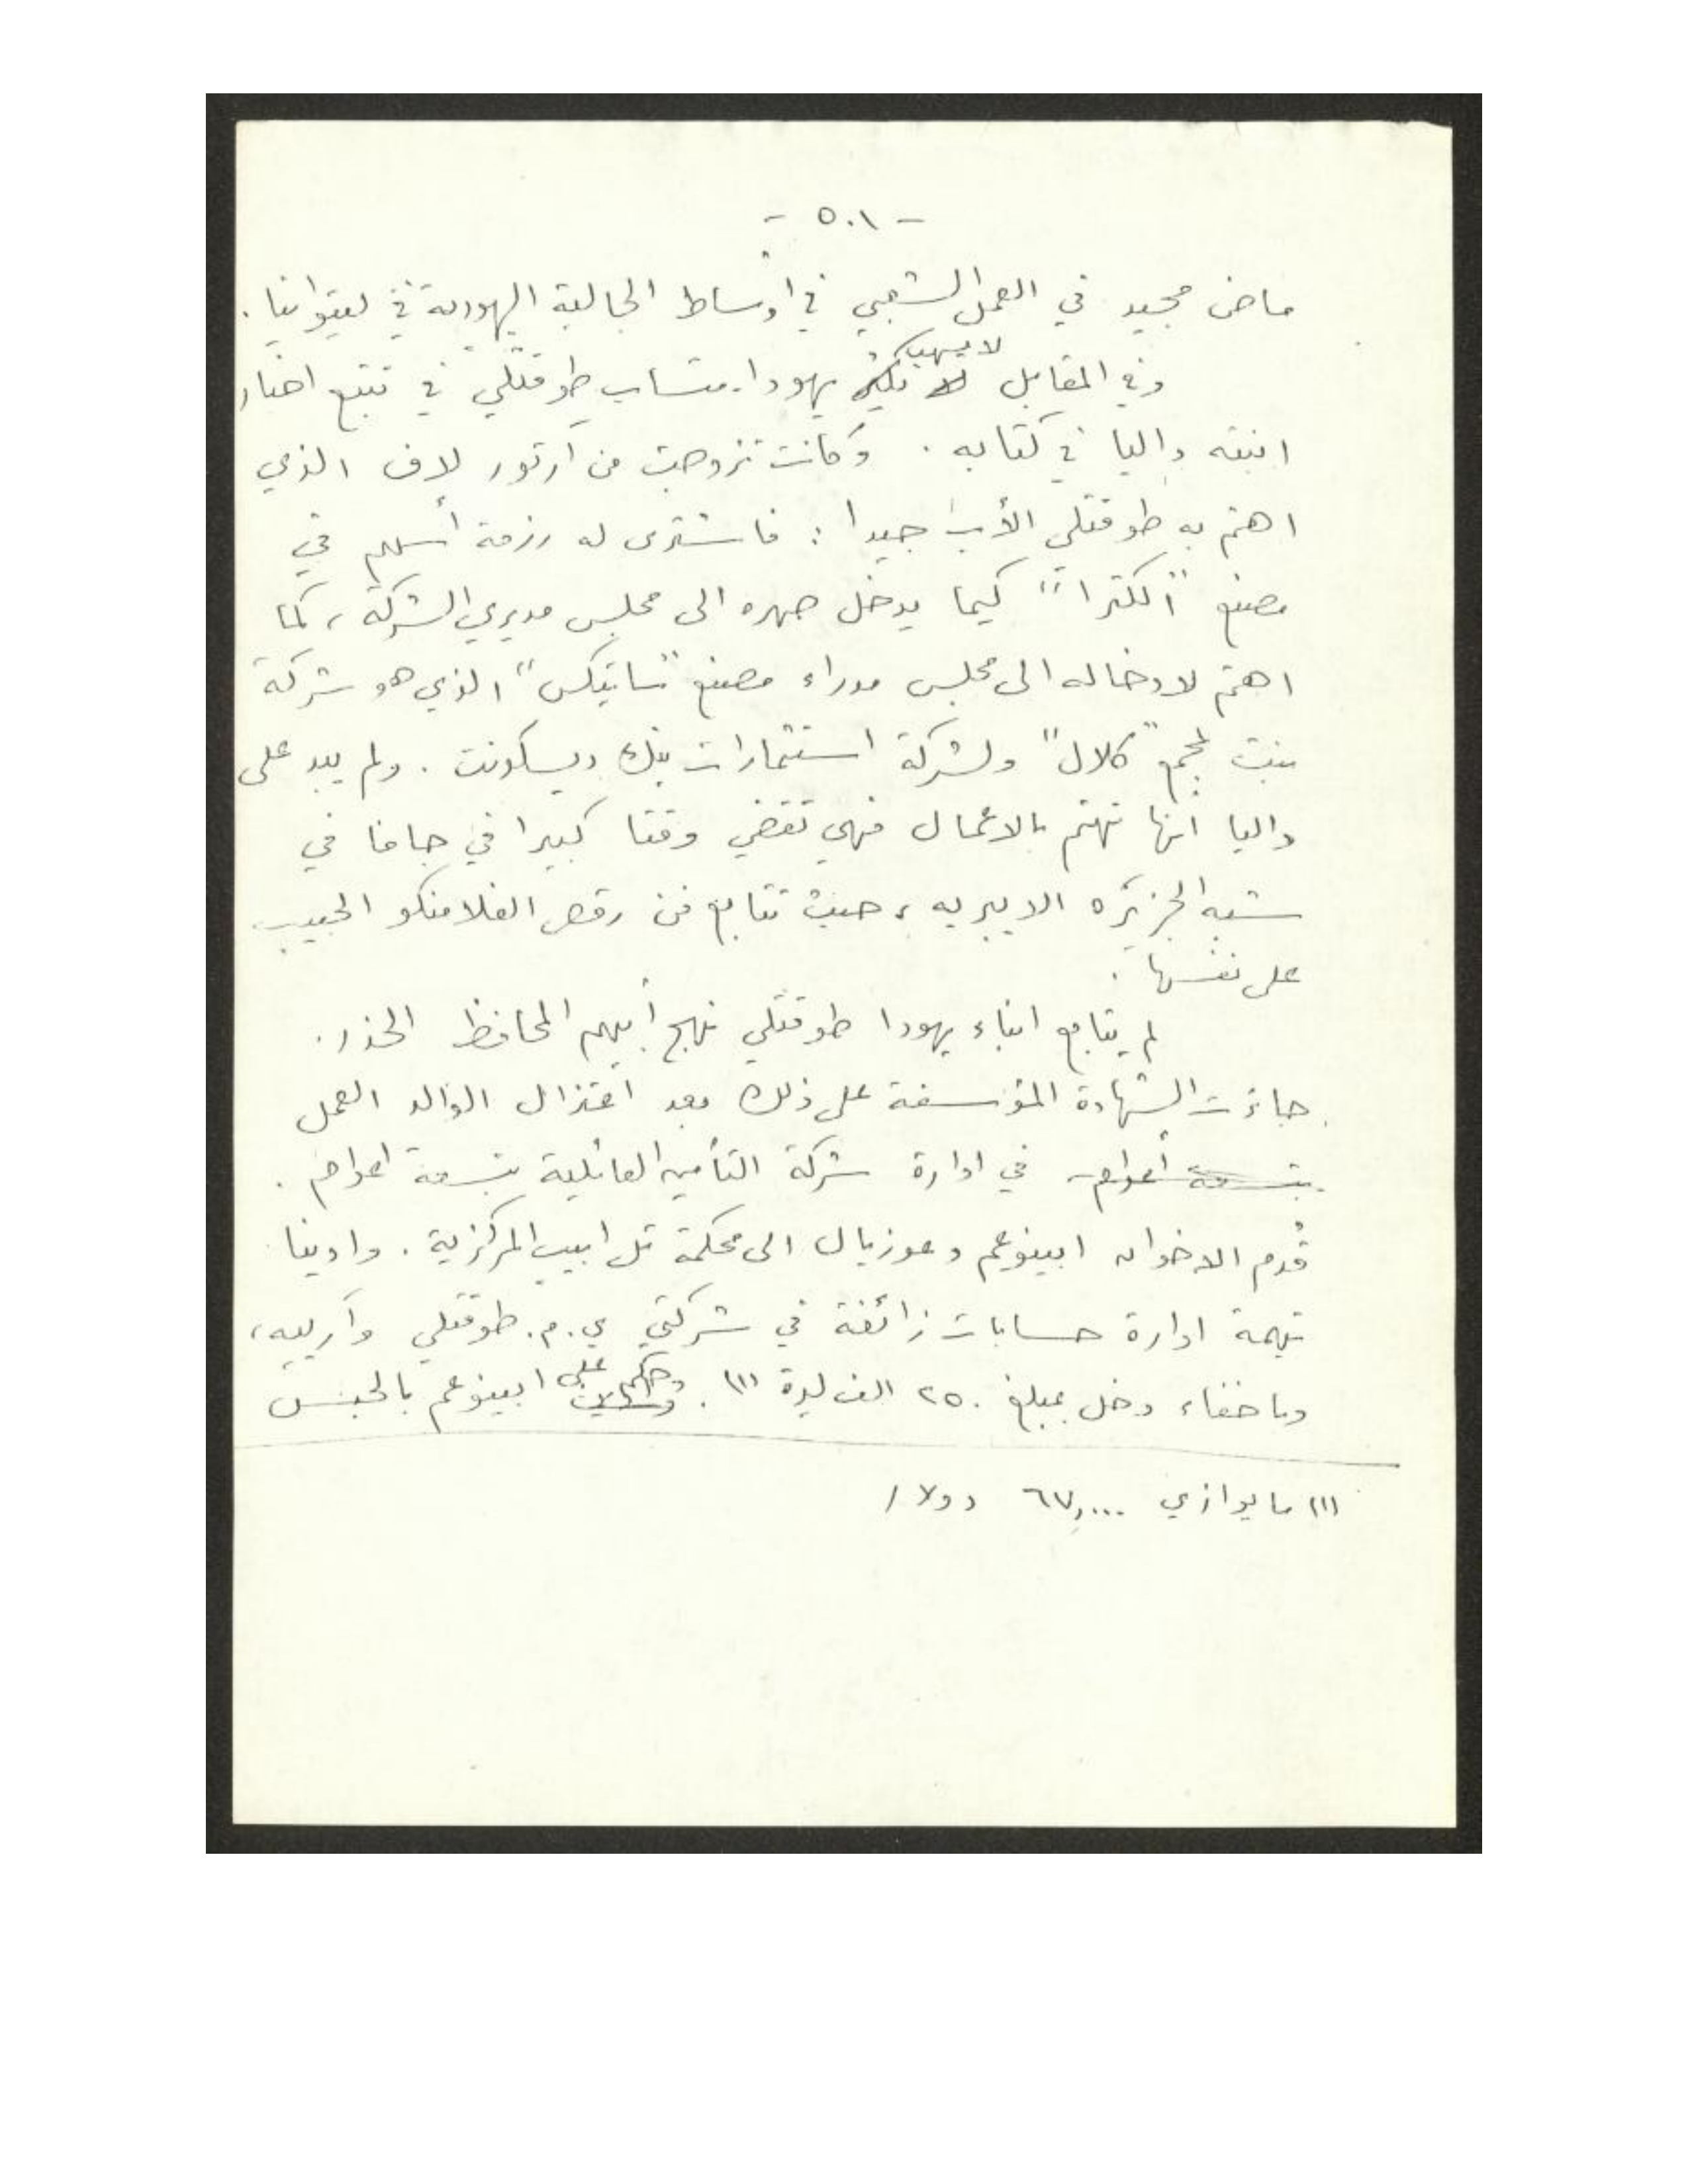 - ٥٠١ -
ماض مجيد في العمل الشعبي في اوساط الجالية اليهودية في ليتوانيا .
لا يسهب
وفي المقابل لا يهودا متساب طوقتلي في تتبع اخبار
ابنته داليا في كتابه . وكانت تزوجت من آرتور لاف الذي
اهتم به طوقتلي الأب جيدا : فاشترى له رزمة أسهم في
مصنع "الكترا" كيما يدخل صهره الى مجلس مديري الشركة ، كما
اهتم لادخاله الى مجلس مدراء مصنع "سانتكس" الذي هو شركة
بنت لمجمع "كلال" ولشركة استثمارات بنك ديسكونت . ولم يبد على
داليا انها تهتم بالاعمال فهي تقضي وقتا كبيرا في جافا في
شبه الجزيرة الايبريه ، حيث تتابع فن رقص الفلامنكو الحبيب
على نفسها .
لم يتابع ابناء يهودا طوقتلي نهج أبيهم المحافظ الحذر .
جاءت الشهادة المؤسفة على ذلك بعد اعتزال الوالد العمل
بتسعة أعوام في ادارة شركة التأمين العائلية بتسعة اعوام .
قُدم الاخوان ابينوعم وعوزيال الى محكمة تل ابيب المركزية . وادينا
بتهمة ادارة حسابات زائفة في شركتي ي . م . طوقتلي وآرييه ،
وباخفاء دخل بمبلغ ٢٥٠ الف ليرة (١) . وحكم على ابينوعم بالحبس
(١) ما يوازي ٦٧,٠٠٠ دولار